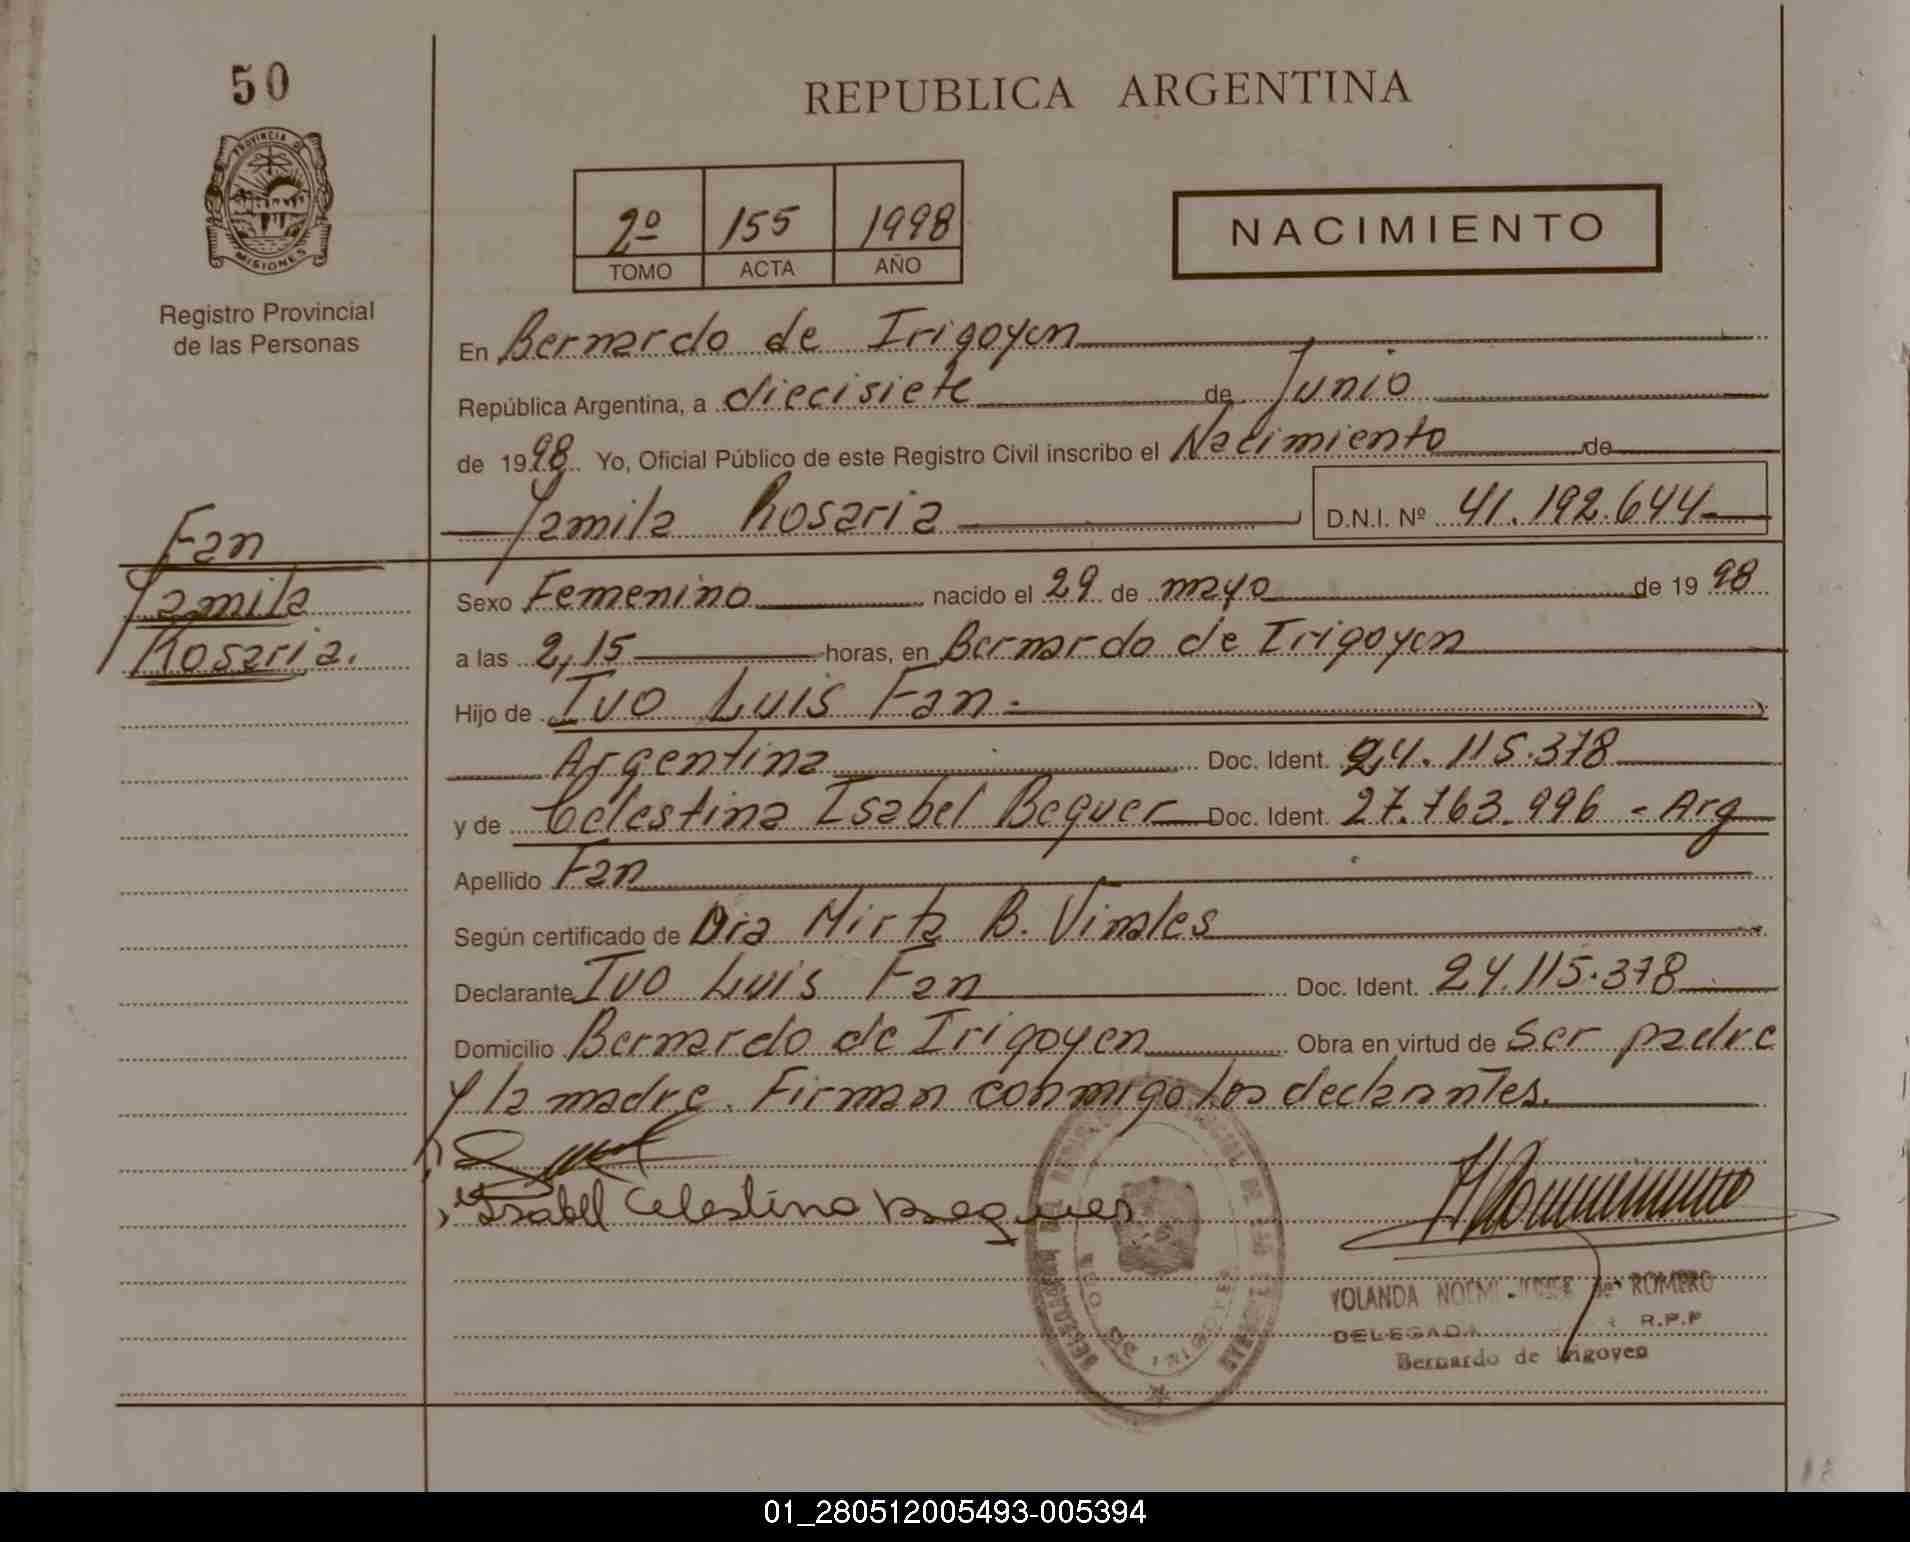 50
REPUBLICA ARGENTINA
PROVINCIA DE
MISIONES
Registro Provincial
de las Personas
2º 155 1998
TOMO ACTA AÑO
NACIMIENTO
En Bernardo de Irigoyen
República Argentina, a diecisiete de Junio
de 1998 Yo, Oficial Público de este Registro Civil inscribo el Nacimiento de
Yamila Rosaria D.N.I. Nº 41.192.644
Fan
Yamila
Rosaria.
Sexo Femenino nacido el 29 de mayo de 1998
a las 2,15 horas, en Bernardo de Irigoyen
Hijo de Ivo Luis Fan.
Argentina Doc. Ident. 24.115.378
y de Celestina Isabel Bequer Doc. Ident. 27.763.996 - Arg
Apellido Fan
Según certificado de Dra Mirta B. Vinales
Declarante Ivo Luis Fan Doc. Ident. 24.115.378
Domicilio Bernardo de Irigoyen Obra en virtud de Ser padre
y la madre. Firman conmigo los declarantes.
Isabel Celestina Bequer
YOLANDA NOEMI de ROMERO
DELEGADA R.P.P
Bernardo de Irigoyen
01_280512005493-005394